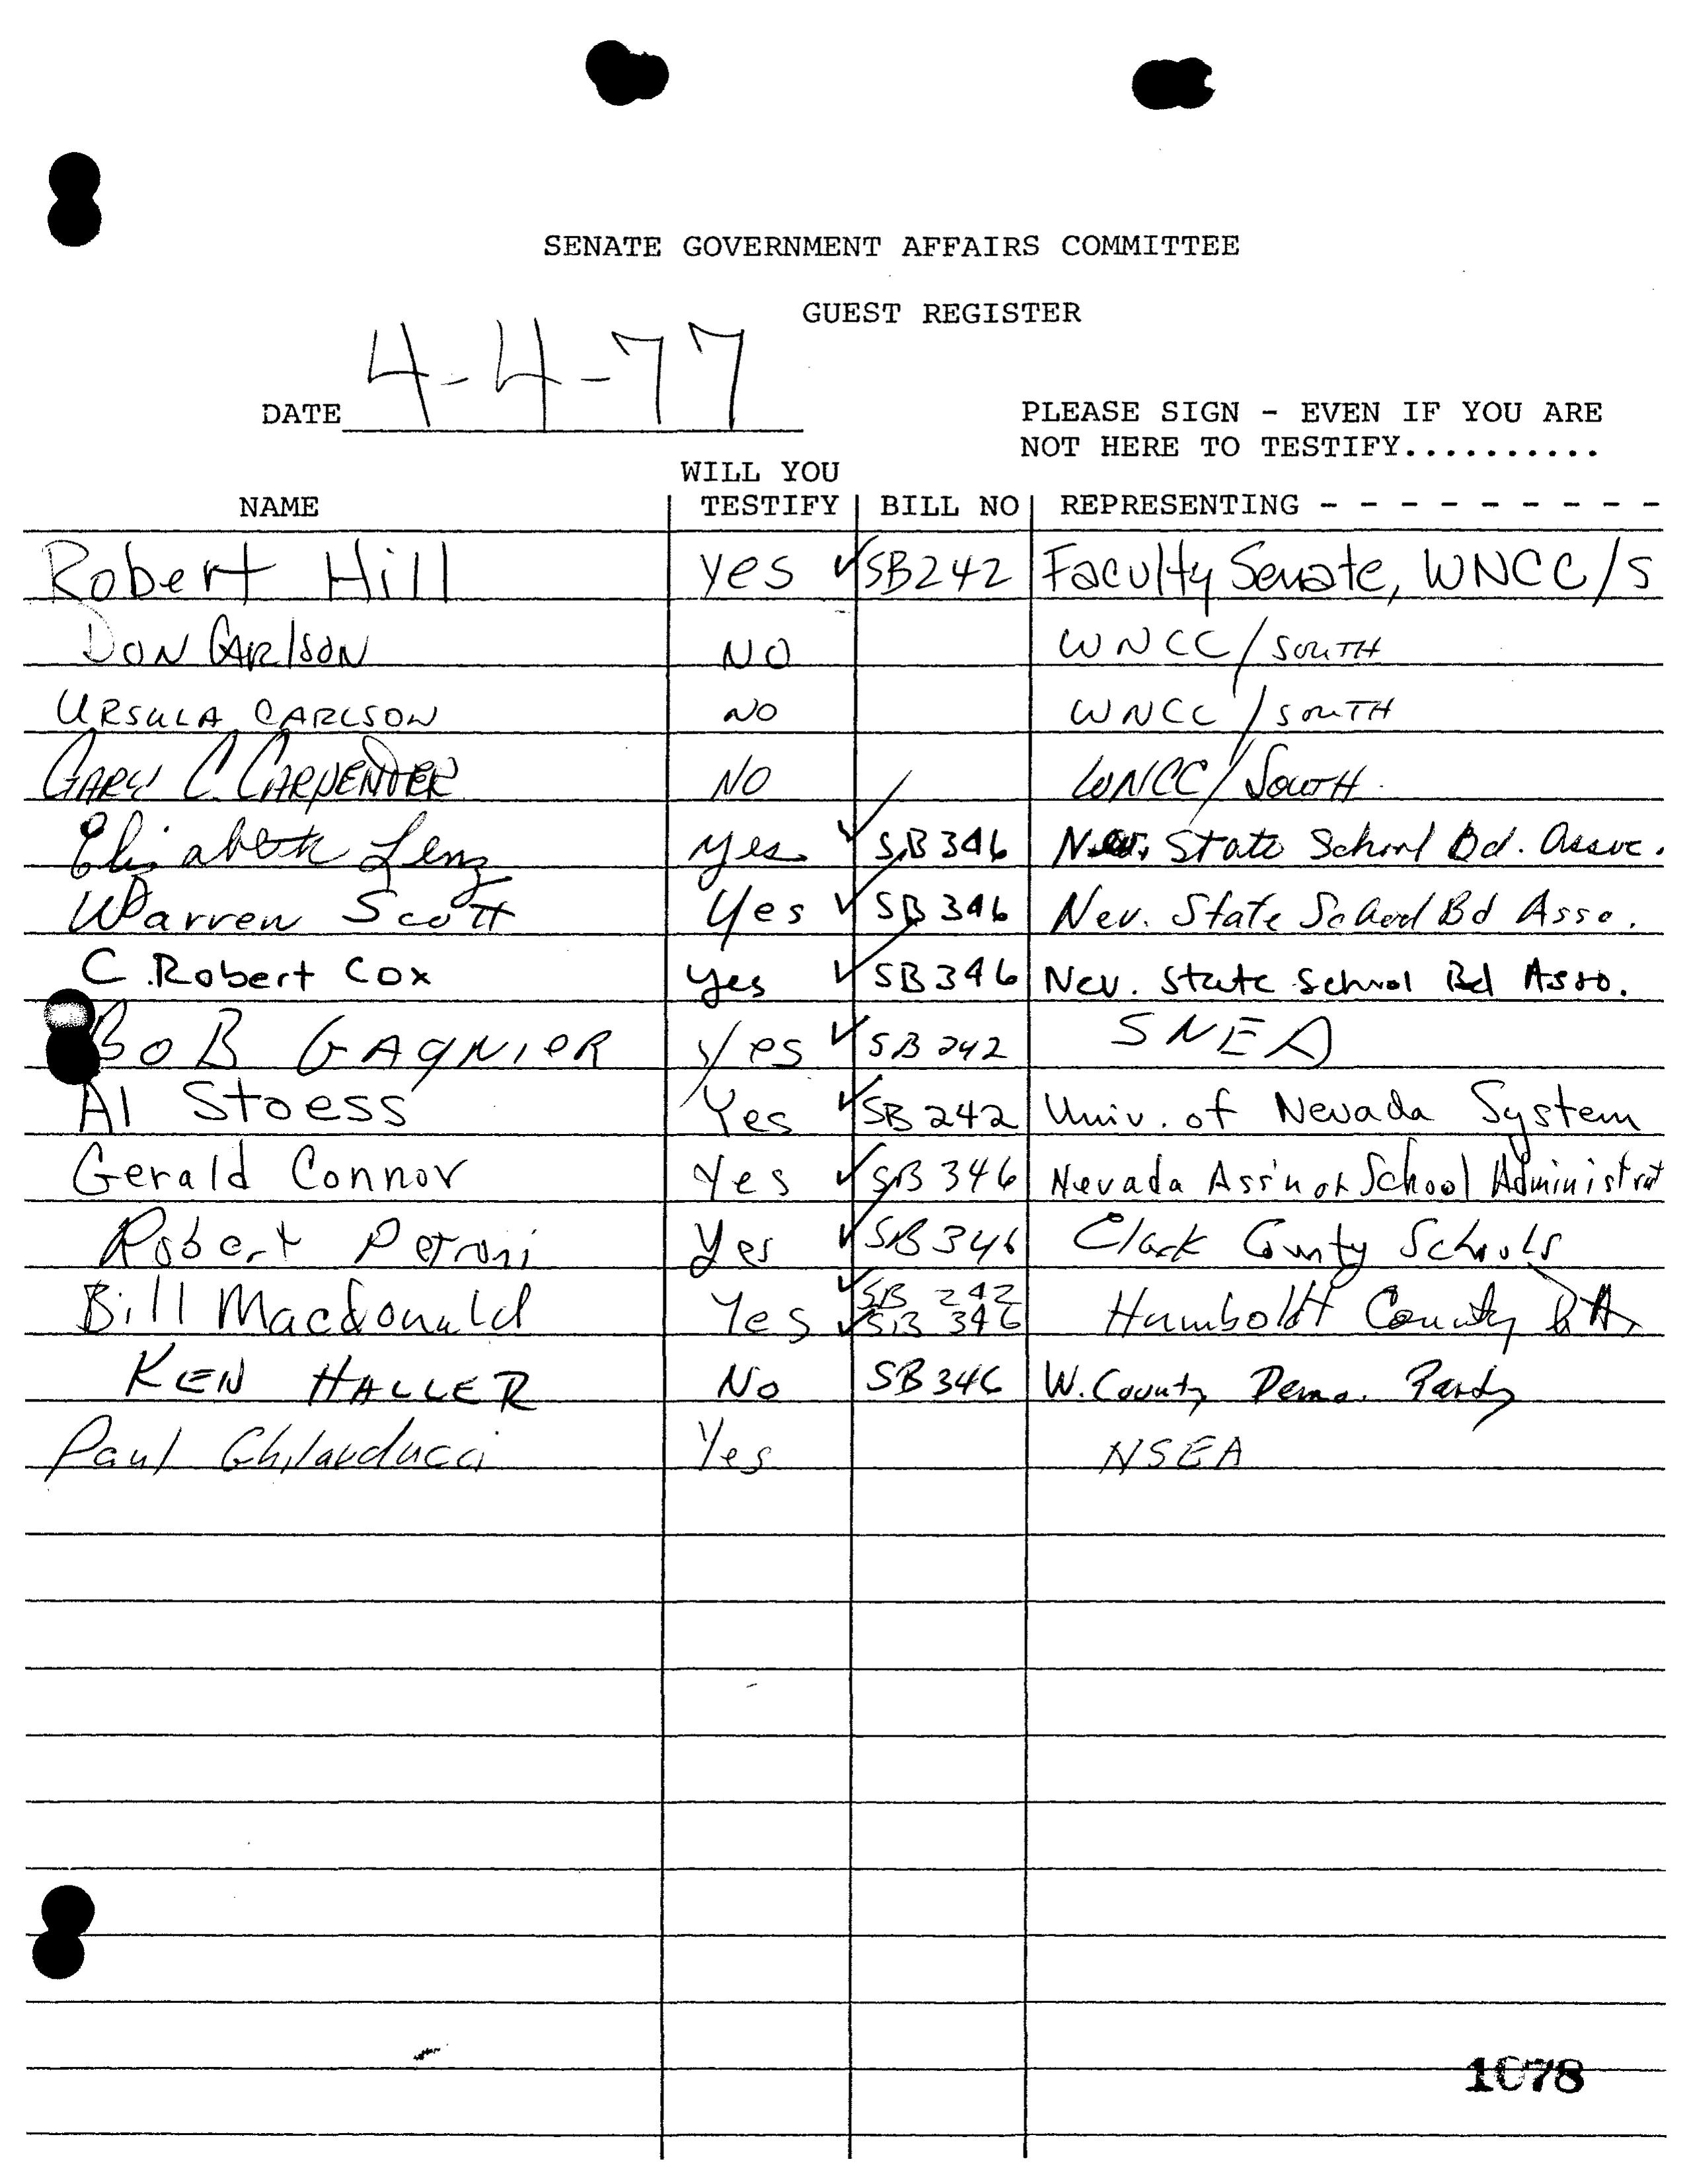 SENATE GOVERNMENT AFFAIRS COMMITTEE
GUEST REGISTER
DATE 4-4-77
PLEASE SIGN - EVEN IF YOU ARE
NOT HERE TO TESTIFY..........
WILL YOU
NAME TESTIFY BILL NO REPRESENTING - - - - - - - - - -
Robert Hill yes ✓SB242 Faculty Senate, WNCC/S
DON CARlSON NO WNCC/SOUTH
URSULA CARLSON NO WNCC/SOUTH
GARY C. CARPENTER NO WNCC/South
Elizabeth Lenz yes ✓ SB346 Nev. State School Bd. Assoc.
Warren Scott Yes ✓ SB346 Nev. State School Bd Asso.
C. Robert Cox yes ✓ SB346 Nev. State School Bd Asso.
BOB GAGNIER yes ✓ SB 242 SNEA
Al Stoess Yes ✓ SB 242 Univ. of Nevada System
Gerald Connor Yes ✓ SB 346 Nevada Ass'n of School Administrat
Robert Petroni Yes ✓ SB 346 Clark County Schools
Bill Macdonald Yes ✓ SB 242
✓ SB 346 Humboldt County DA
KEN HALLER No SB346 W. County Demo. Party
Paul Ghilarducci Yes NSEA
1078